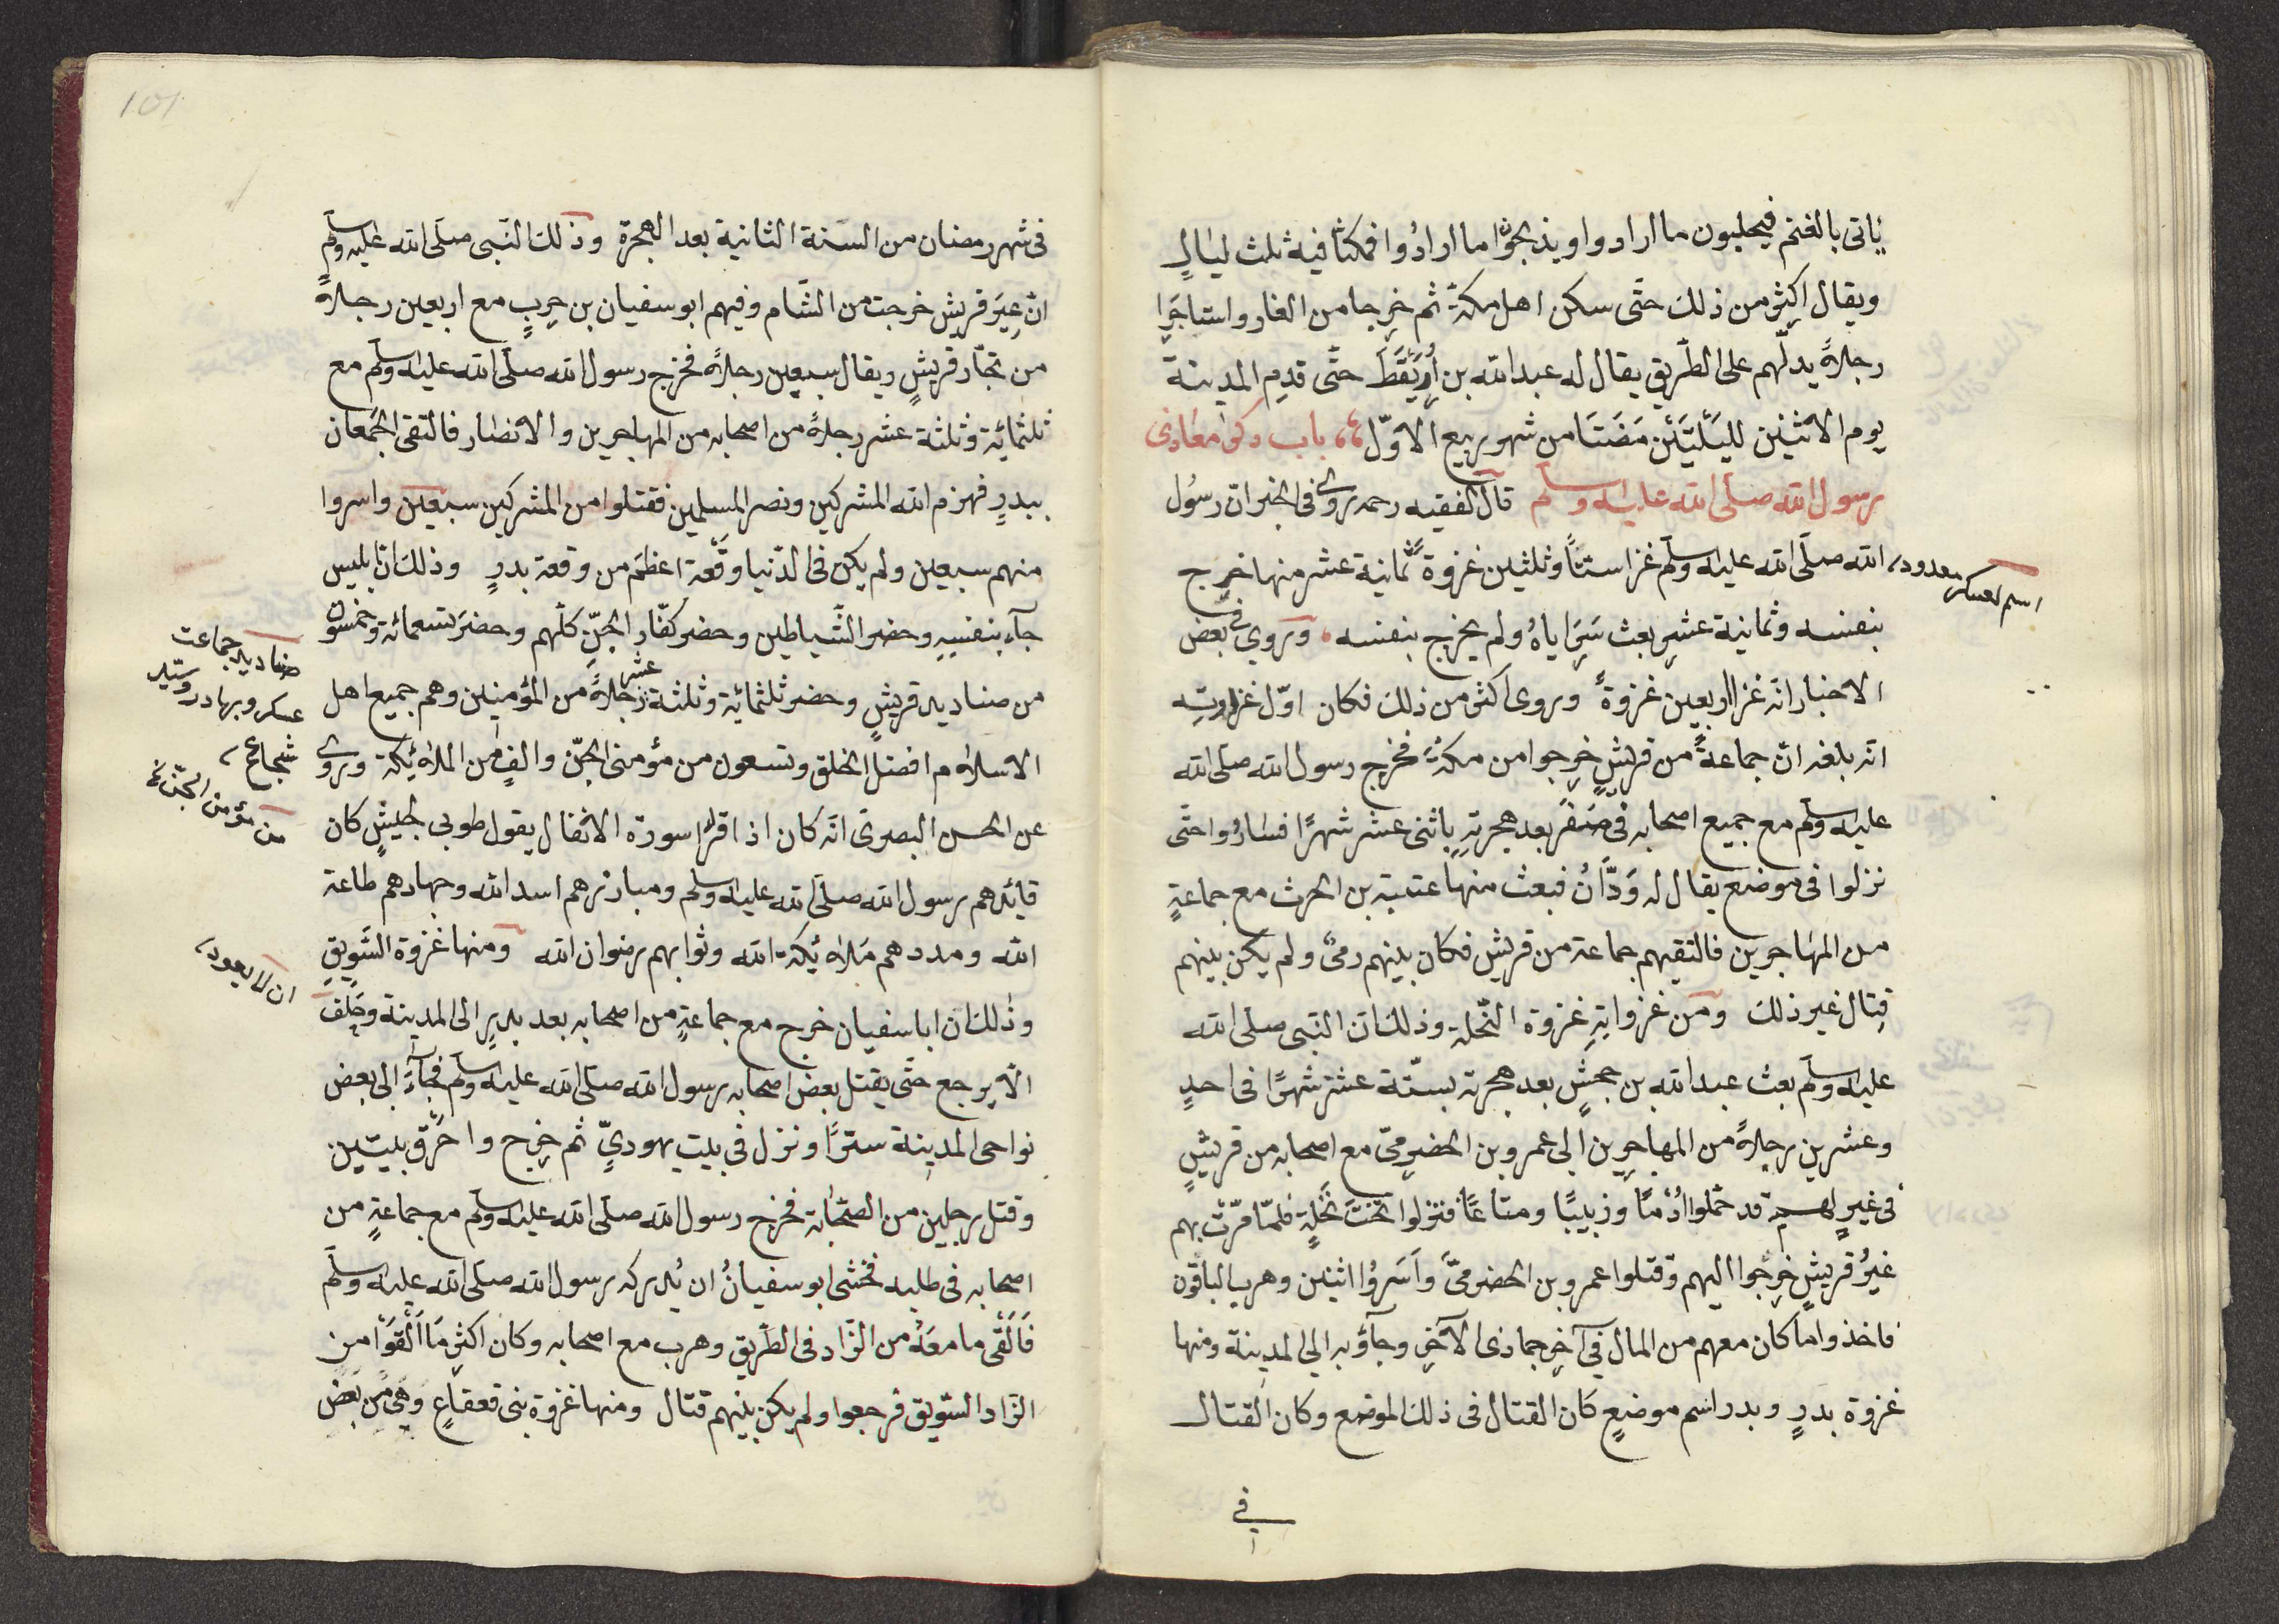 يأتى بالغنم فيحلبون ما ارادوا ويذبحوا ما ارادوا فمكثا فيه ثلث ليال
ويقال اكثر من ذلك حتى سكن اهل مكة ثم خرجا من الغار واستاجرا
رجلاً يدلهم على الطريق يقال له عبد الله بن اُرَيْقَط حتى قدم المدينة
يوم الاثنين لليلتين مضتا من شهر ربيع الاول باب ذكر مغازى
رسول الله صلى الله عليه وسلم قال الفقيه رحمه روى فى الخبر ان رسول
الله صلى الله عليه وسلم غزا ستا وثلثين غزوة ثمانية عشر منها خرج
بنفسه وثمانية عشر بعث سراياه ولم يخرج بنفسه وروي فى بعض
الاخبار انه غزا اربعين غزوة وروى اكثر من ذلك فكان اول غزوته
انه بلغه ان جماعة من قريش خرجوا من مكة فخرج رسول الله صلى الله
عليه وسلم مع جميع اصحابه فى صفر بعد هجرته باثنى عشر شهرًا فساروا حتى
نزلوا فى موضع يقال له ودّان فبعث منها عتبة بن الحرث مع جماعةٍ
من المهاجرين فالتقيهم جماعة من قريش فكان بينهم رمىٌ ولم يكن بينهم
قتال غير ذلك ومن غزواته غزوة النخلة وذلك ان النبى صلى الله
عليه وسلم بعث عبد الله بن جحش بعد هجرته بستة عشر شهرًا فى احدٍ
وعشرين رجلاً من المهاجرين الى عمرو بن الحضرمى مع اصحابه من قريش
فى عيرٍ لهم قد حملوا اُدْمًا وزبيبًا ومتاعًا فنزلوا تحت نخلةٍ فلمّا مرّت بهم
عيرُ قريش خرجوا اليهم وقتلوا عمرو بن الحضرمىّ وأَسَروُا اثنين وهرب الباقون
فاخذوا ما كان معهم من المال فى آخر جمادى الآخر وجاؤ به الى المدينة ومنها
غزوة بدرٍ وبدر اسم موضعٍ كان القتال فى ذلك الموضع وكان القتال
فى
اسم لعسكر معدود
101
فى شهر رمضان من السنة الثانية بعد الهجرة وذلك النبى صلى الله عليه وسلم
انّ عيرَ قريش خرجت من الشام وفيهم ابو سفيان بن حربٍ مع اربعين رجلاً
من تجّار قريشٍ ويقال سبعين رجلاً فخرج رسول الله صلى الله عليه وسلم مع
ثلثمائة وثلثة عشر رجلاً من اصحابه من المهاجرين والانصار فالتقى الجمعان
ببدرٍ فهزم الله المشركين ونصر المسلمين فقتلوا من المشركين سبعين واسروا
منهم سبعين ولم يكن فى الدنيا وقعة اعظم من وقعة بدرٍ وذلك ان ابليس
جآء بنفسه وحضر الشياطين وحضر كفّار الجنّ كلّهم وحضر تسعمائة وخمسون
من صناديد قريشٍ وحضر ثلثمائة وثلثة عشر رجلاً من المؤمنين وهم جميع اهل
الاسلام افضل الخلق وتسعون من مؤمنى الجنّ والفٍ من الملائكة وروى
عن الحسن البصرى انه كان اذا قرأ سورة الانفال يقول طوبى لجيشٍ كان
قائدهم رسول الله صلى الله عليه وسلم ومبارزهم اسد الله وجهادهم طاعة
الله ومددهم ملائكة الله وثوابهم رضوان الله ومنها غزوة السويق
وذلك ان ابا سفيان خرج مع جماعةٍ من اصحابه بعد بدرٍ الى المدينة وحلف
الا يرجع حتى يقتل بعض اصحابه رسول الله صلى الله عليه وسلم فجآء الى بعض
نواحى المدينة سترًا ونزل فى بيت يهودىٍّ ثم خرج واحرق بيتين
وقتل رجلين من الصحابة فخرج رسول الله صلى الله عليه وسلم مع جماعةٍ من
اصحابه فى طلبه فخشى ابو سفيانُ ان يدركه رسول الله صلى الله عليه وسلم
فَاَلْقَى ما معَهُ من الزاد فى الطريق وهرب مع اصحابه وكان اكثر مَا اَلْقَوْا من
الزاد السويق فرجعوا ولم يكن بينهم قتال ومنها غزوة بنى قعقاع وهى من بعض
صناديد جماعت
عسكر وبهادر وسيد
شجاع
من مؤمن الجن نخ
ان لا يعود